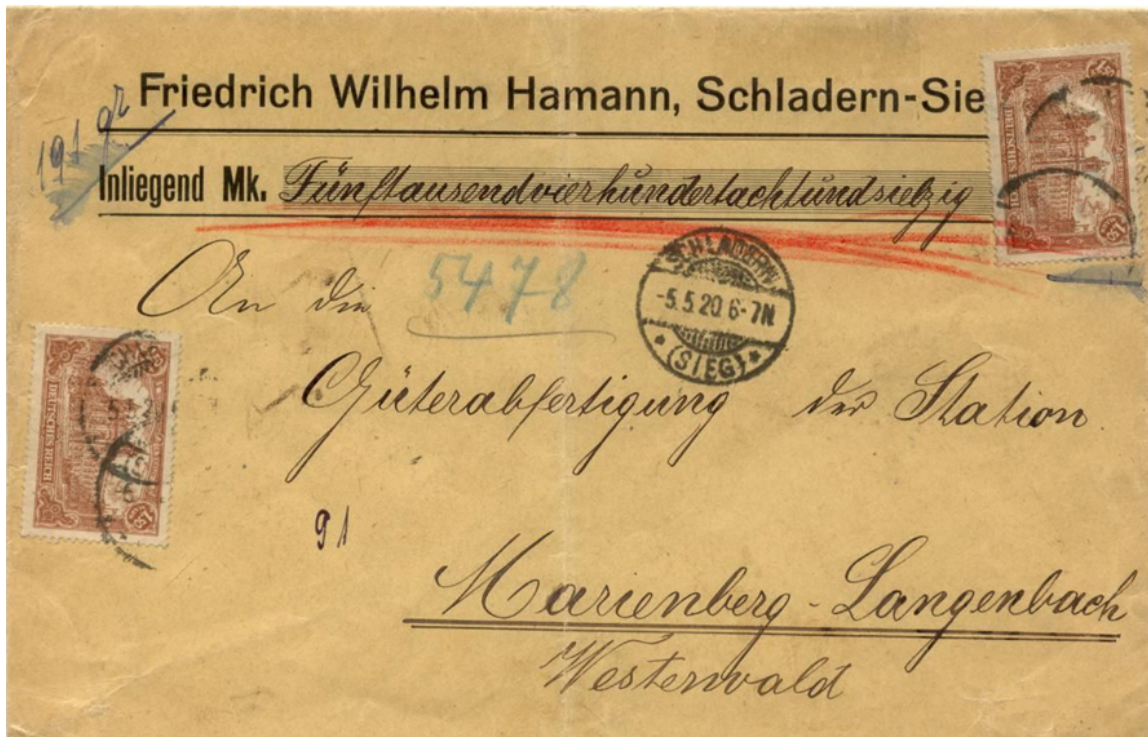 Friedrich Wilhelm Hamann, Schladern-Sie
191 gr
Inliegend Mk. Fünftausendvierhundertachtundsiebzig
An die
5478
SCHLADERN
-5.5.20.6-7N
* (SIEG) *
Güterabfertigung der Station
91
Marienberg-Langenbach
Westerwald
DEUTSCHES REICH
DEUTSCHES